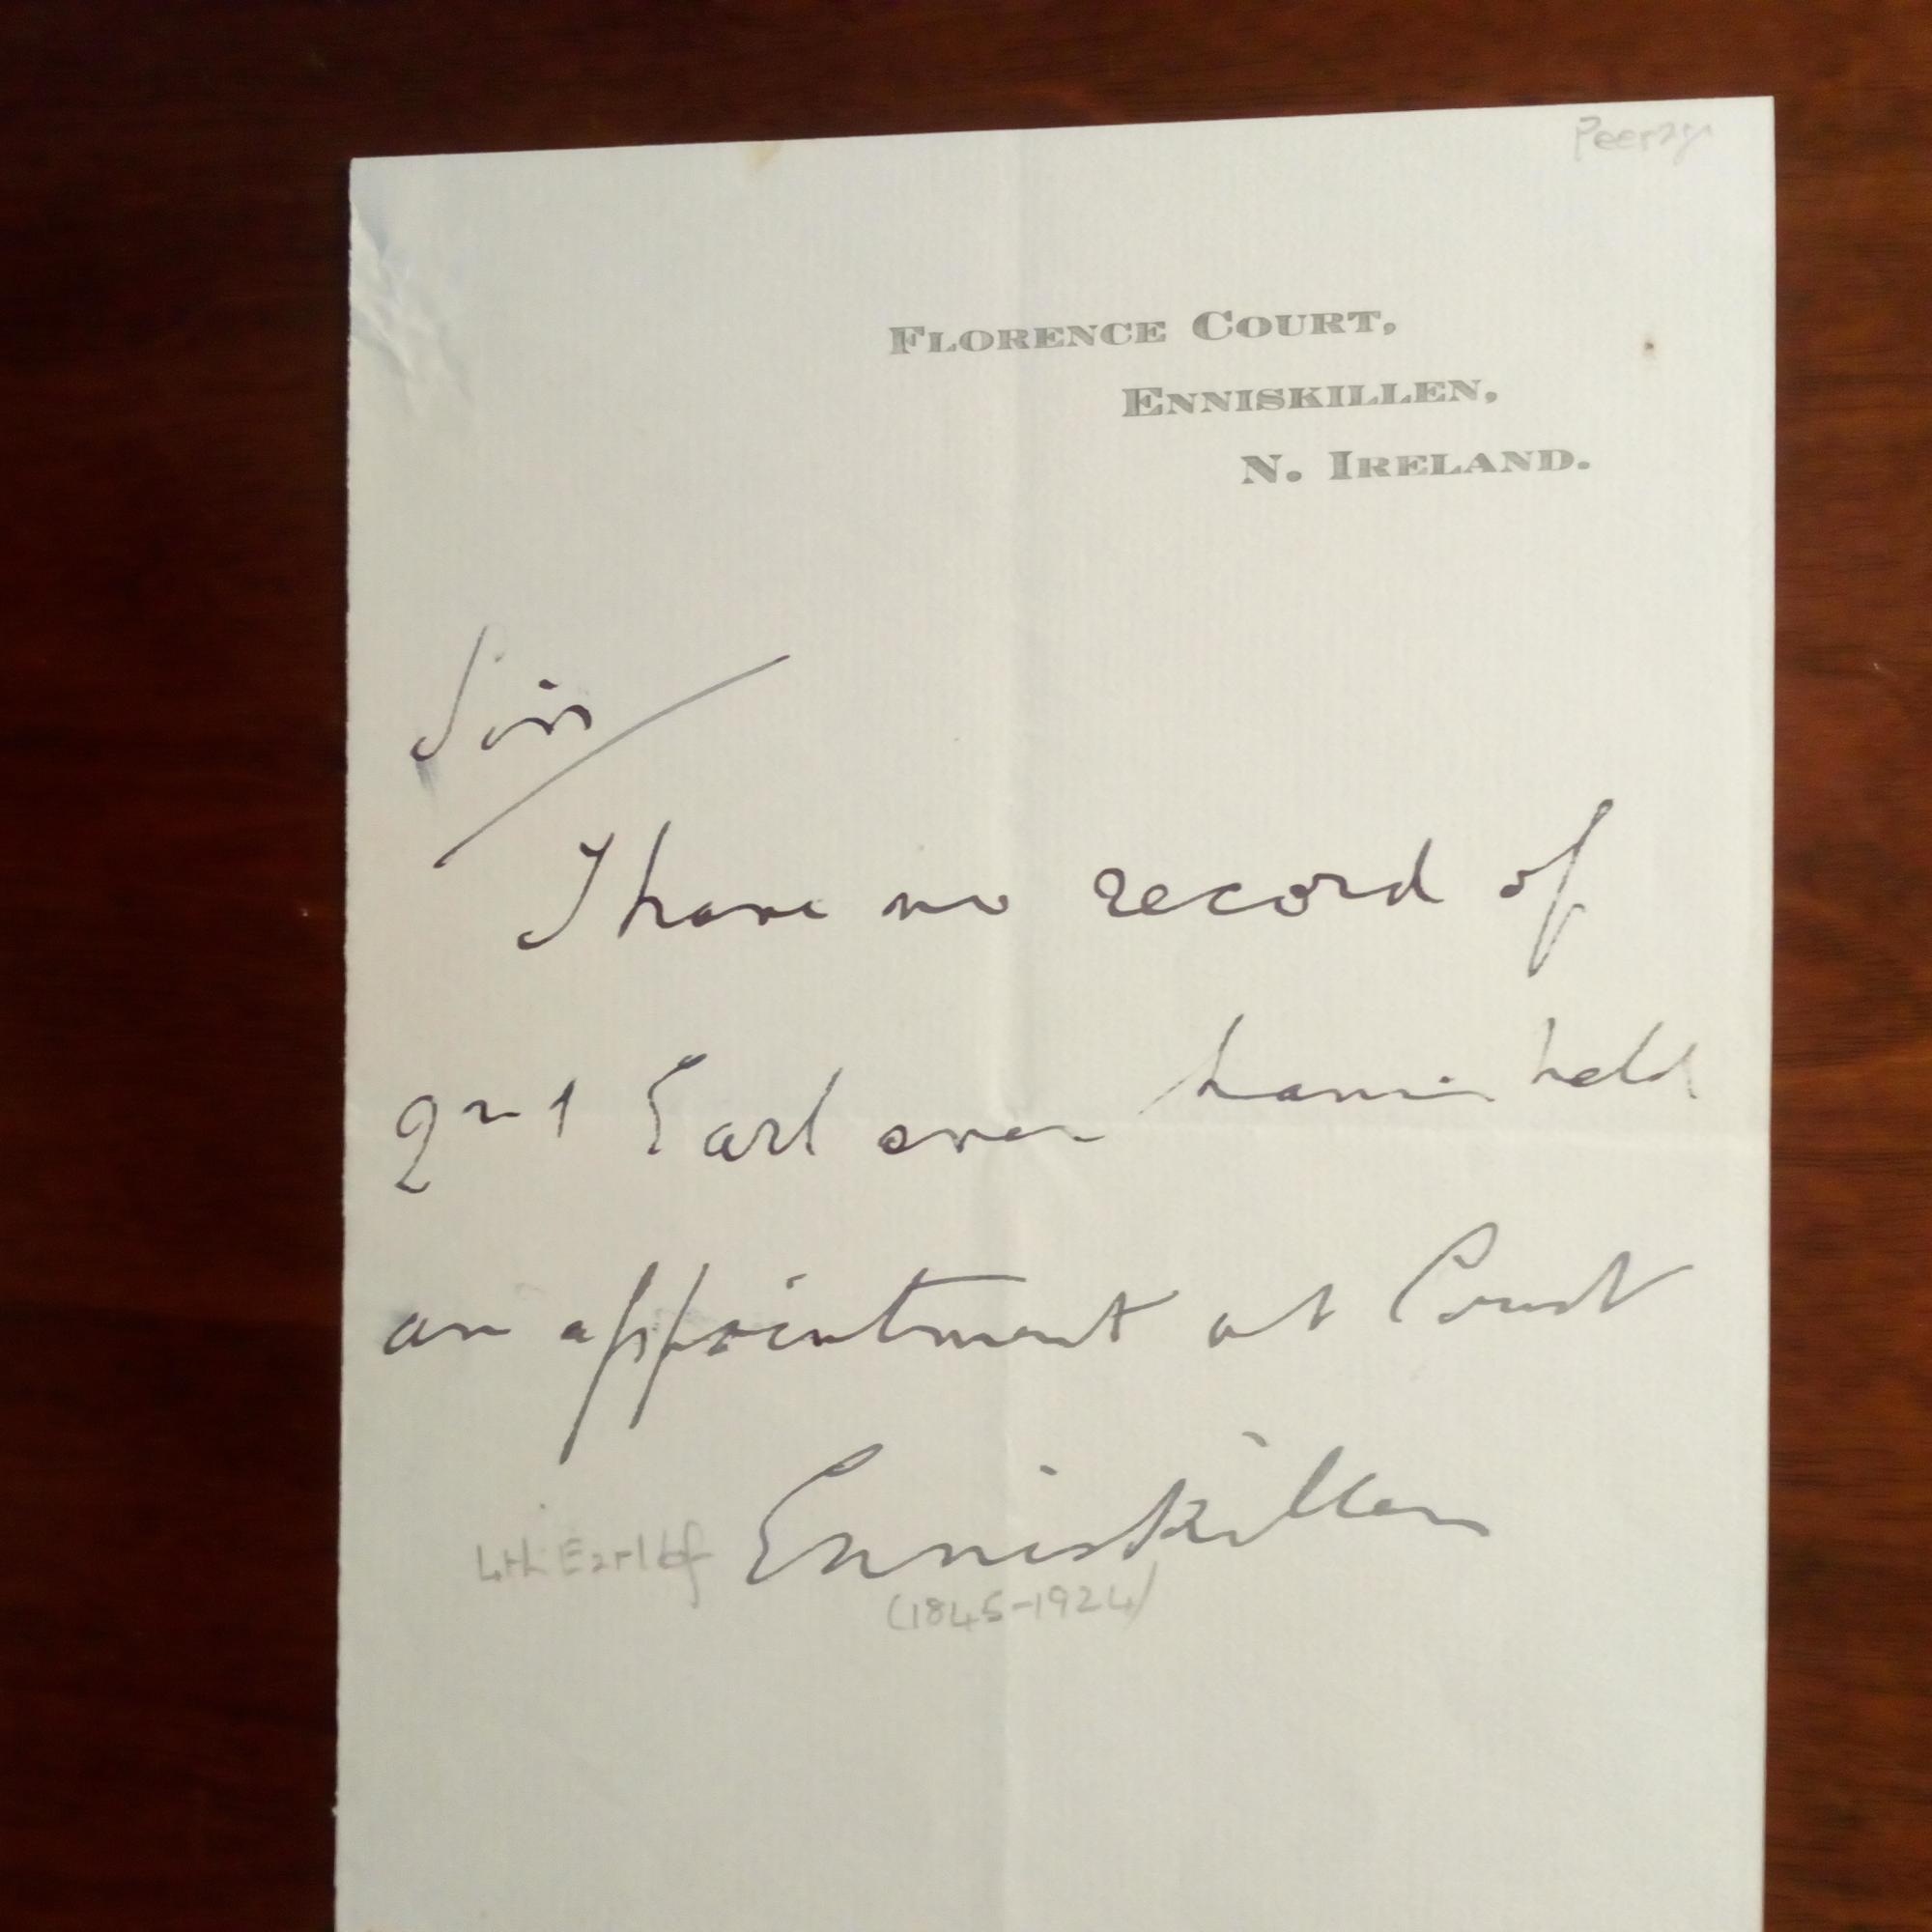 Peerage
FLORENCE COURT,
ENNISKILLEN,
N. IRELAND.
Sir
I have no record of
2nd Earl ever having held
an appointment at Court
4th Earl of Enniskillen
(1845-1924)